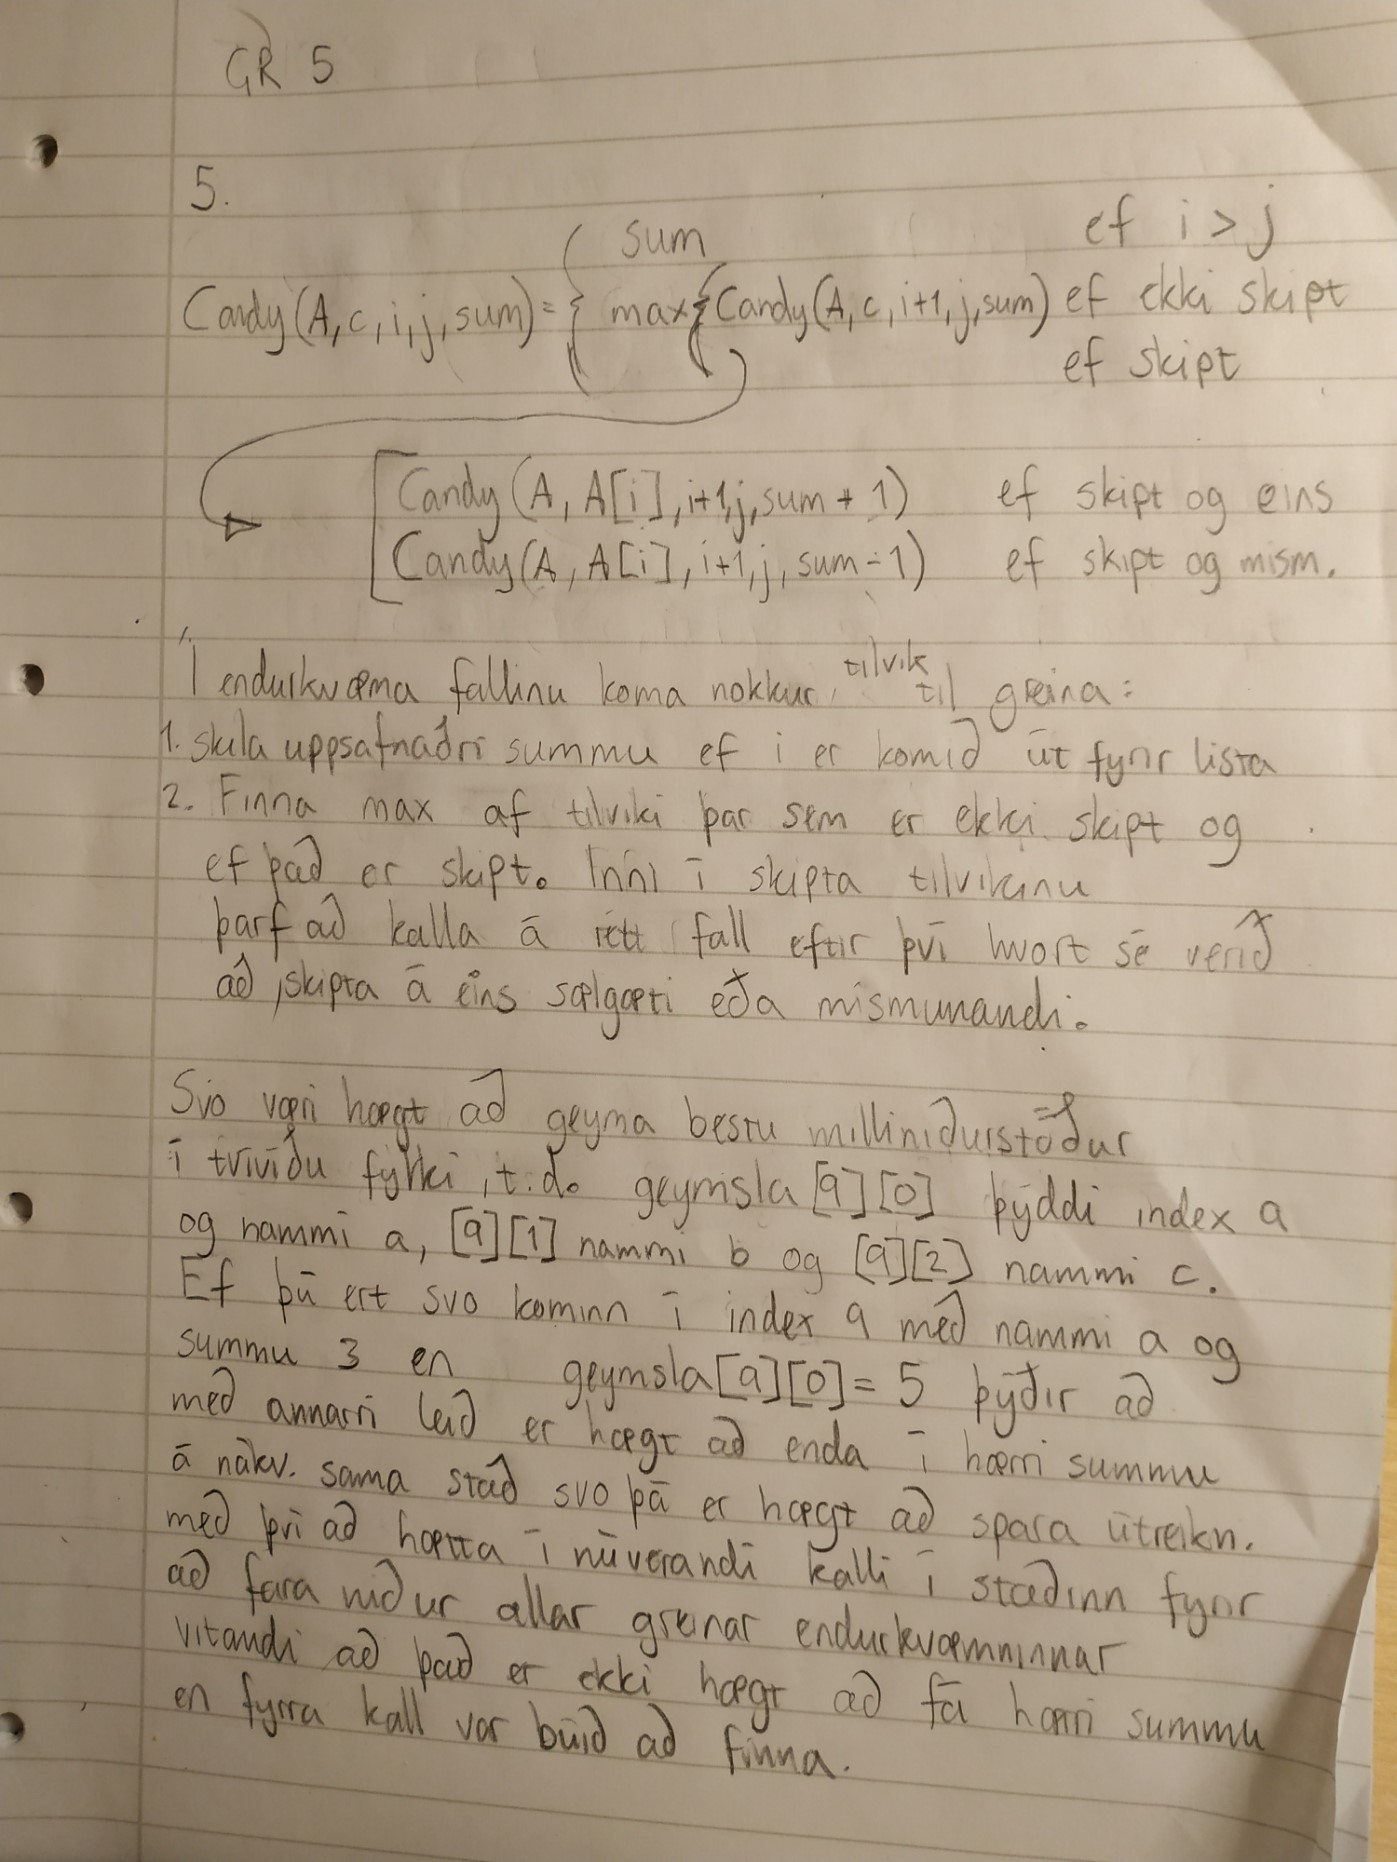 GR 5
5.
sum ef i > j
Candy(A, c, i, j, sum) = { max { Candy(A, c, i+1, j, sum) ef ekki skipt
ef skipt
Candy(A, A[i], i+1, j, sum + 1) ef skipt og eins
Candy(A, A[i], i+1, j, sum - 1) ef skipt og mism.
Í endurkvæma fallinu koma nokkur tilvik til greina:
1. skila uppsafnaðri summu ef i er komið út fyrir lista
2. Finna max af tilviki þar sem er ekki skipt og
ef það er skipt. Inní í skipta tilvikinu
þarf að kalla á rétt fall eftir því hvort sé verið
að skipta á eins sælgæti eða mismunandi.
Svo væri hægt að geyma bestu milliniðurstöður
í tvívíðu fylki, t.d. geymsla[9][0] þýddi index 9
og nammi a, [9][1] nammi b og [9][2] nammi c.
Ef þú ert svo kominn í index 9 með nammi a og
summu 3 en geymsla[9][0] = 5 þýðir að
með annarri leið er hægt að enda í hærri summu
á nákv. sama stað svo þá er hægt að spara útreikn.
með því að hætta í núverandi kalli í staðinn fyrir
að fara niður allar greinar endurkvæmninnar
vitandi að það er ekki hægt að fá hærri summu
en fyrra kall var búið að finna.